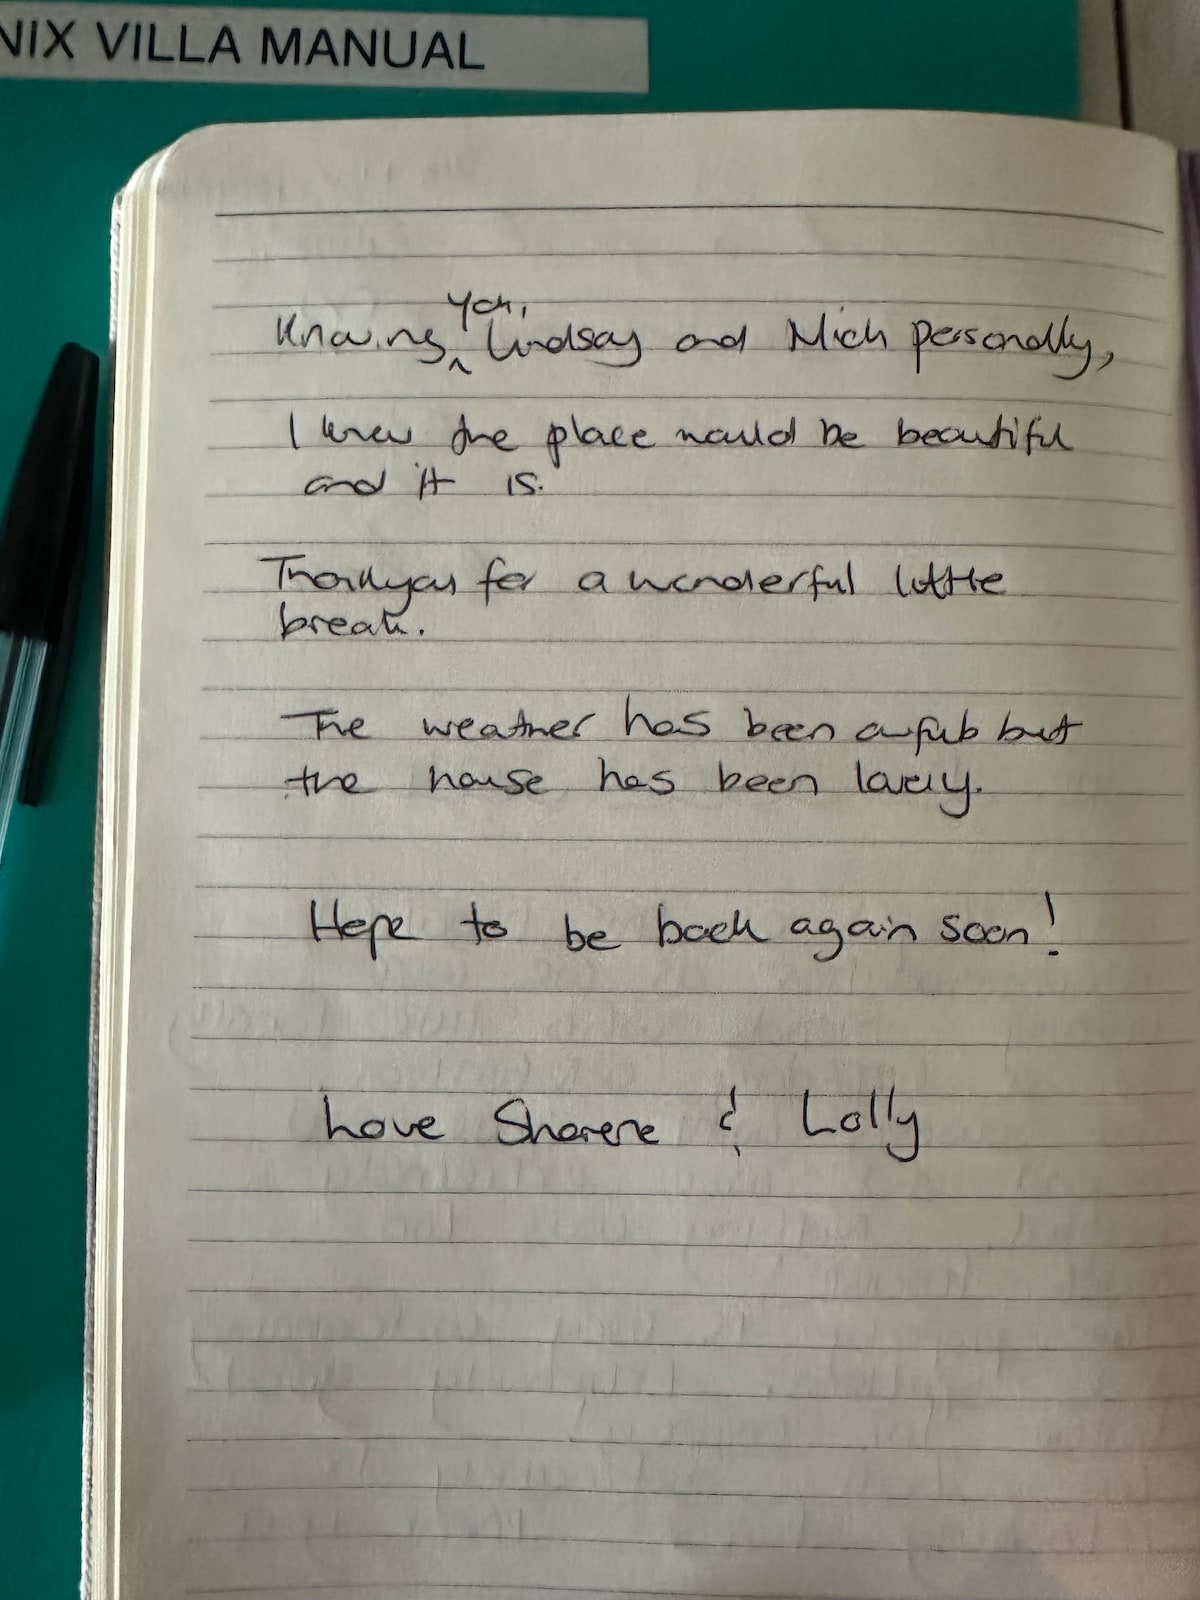 NIX VILLA MANUAL
Knowing you, Lindsay and Nick personally,
I knew the place would be beautiful
and it is.
Thankyou for a wonderful little
break.
The weather has been awful but
the house has been lovely.
Hope to be back again soon!
Love Sharene & Lolly